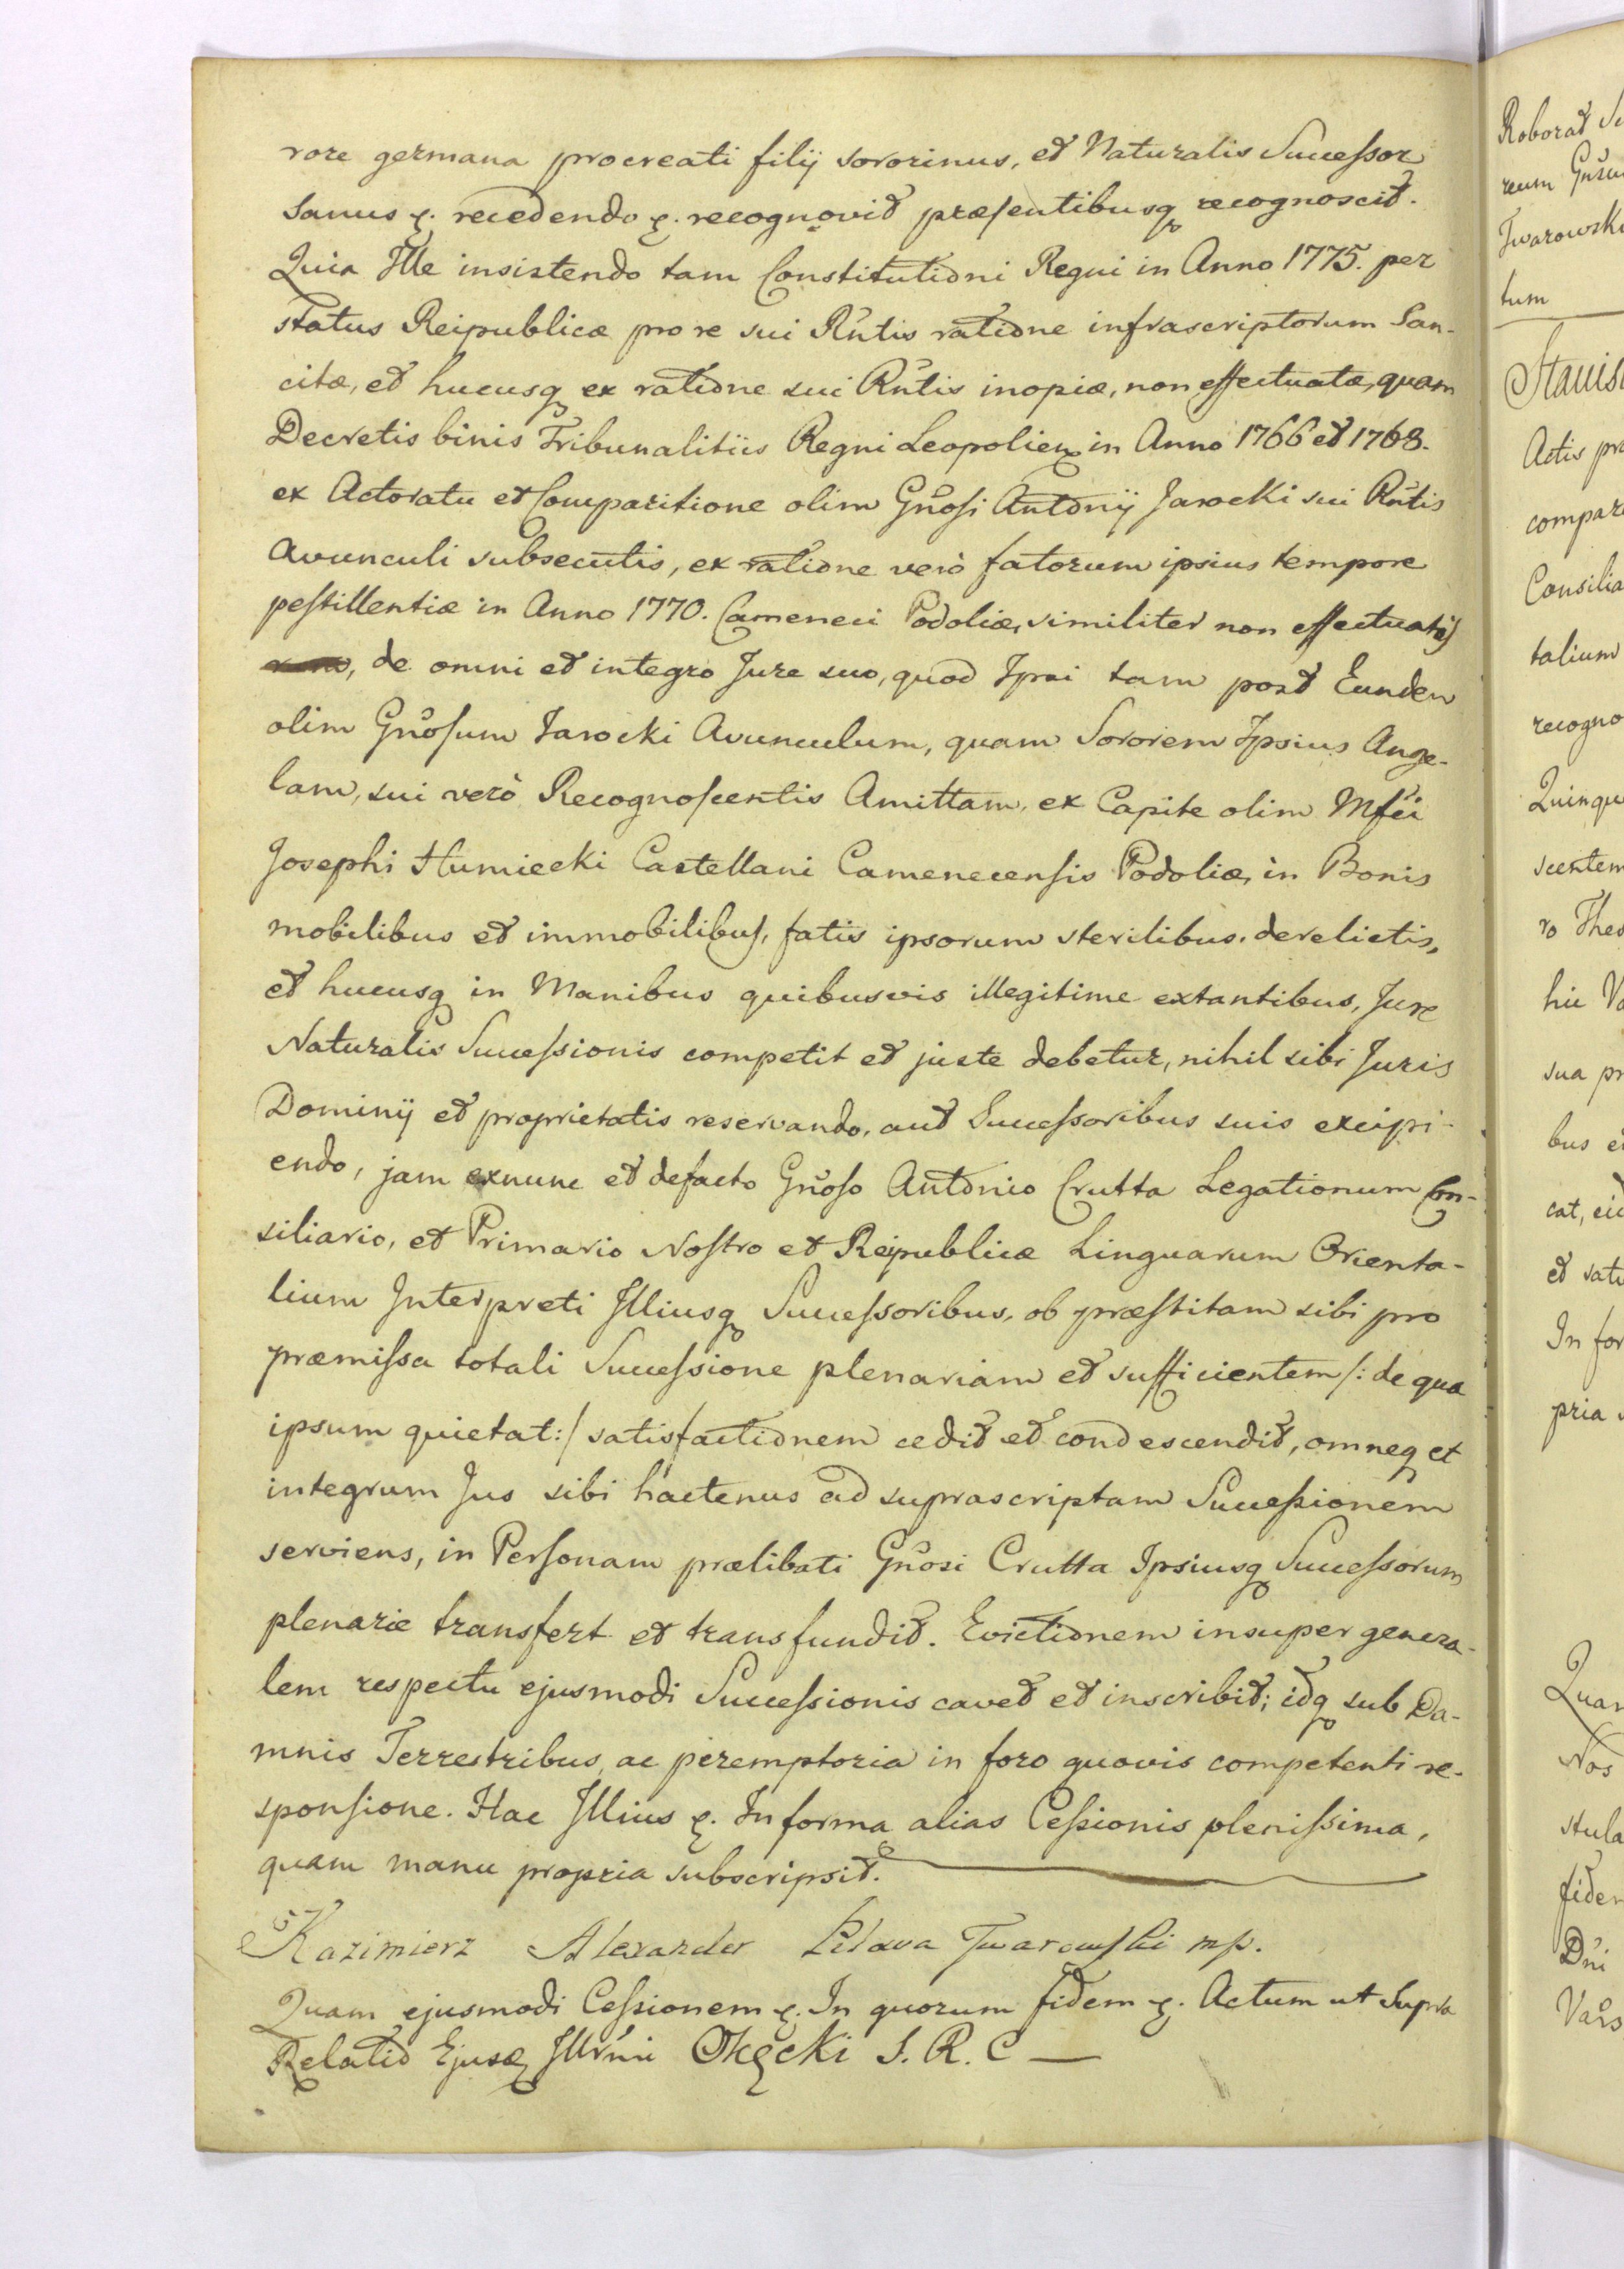 rore germana procreati filij sororinus, et Naturalis Successor
Sanus &. recedendo &. recognovit præsentibusq recognoscit.
Quia Ille insistendo tam Constitutioni Regni in Anno 1775. per
status Reipublicæ pro re sui Rñtis ratione infrascriptorum San-
citæ, et hucusq ex ratione sui Rñtis inopiæ, non effectuatæ, quam
Decretis binis Tribunalitiis Regni Leopolien in Anno 1766 et 1768.
ex Actoratu et Comparitione olim Gñosi Antonij Jarocki sui Rñtis
Avunculi subsecutis, ex ratione verò fatorum ipsius tempore
pestillentiæ in Anno 1770. Cameneci Podoliæ, similiter non effectuatis
, de omni et integro Jure suo, quod Ipsi tam post Eunden
olim Gñosum Jarocki Avunculum, quam Sororem Ipsius Ange-
lam, sui verò Recognoscentis Amittam, ex Capite olim Mfci
Josephi Humiecki Castellani Camenecensis Podoliæ, in Bonis
mobilibus et immobilibus, fatis ipsorum sterilibus, derelictis,
et hucusq in Manibus quibusvis illegitime extantibus, Jure
Naturalis Successionis competit et juste debetur, nihil sibi Juris
Dominij et proprietatis reservando, aut Successoribus suis excipi-
endo, jam exnunc et defacto Gñoso Antonio Crutta Legationum Con-
siliario, et Primario Nostro et Reipublicæ Linguarum Orienta-
lium Interpreti Illiusq Successoribus, ob præstitam sibi pro
præmissa totali Successione plenariam et sufficientem /: de qua
ipsum quietat :/ satisfactionem cedit et condescendit, omneq et
integrum Jus sibi hactenus ad suprascriptam Successionem
serviens, in Personam prælibati Gñosi Crutta Ipsiusq Successorum
plenarie transfert et transfundit. Evictionem insuper genera-
lem respectu ejusmodi Successionis cavet et inscribit; idq sub Da-
mnis Terrestribus, ac peremptoria in foro quovis competenti re-
sponsione. Hac Illius &. In forma alias Cessionis plenissima,
quam manu propria subscripsit.
Kazimierz Alexander Pilawa Twarowski mp.
Quam ejusmodi Cessionem &. In quorum fidem &. Actum ut Supra
Relatio Ejusq Illrmi Okęcki S. R. C
Roborat
reum
Twarowski
tum
Actis
compar
Consilia
talium
recogno
Quinqu
scentem
ro Theo
hic
sua pr
bus
cat,
et
In for
pria
Quan
Nos
stula
fidem
Dñi